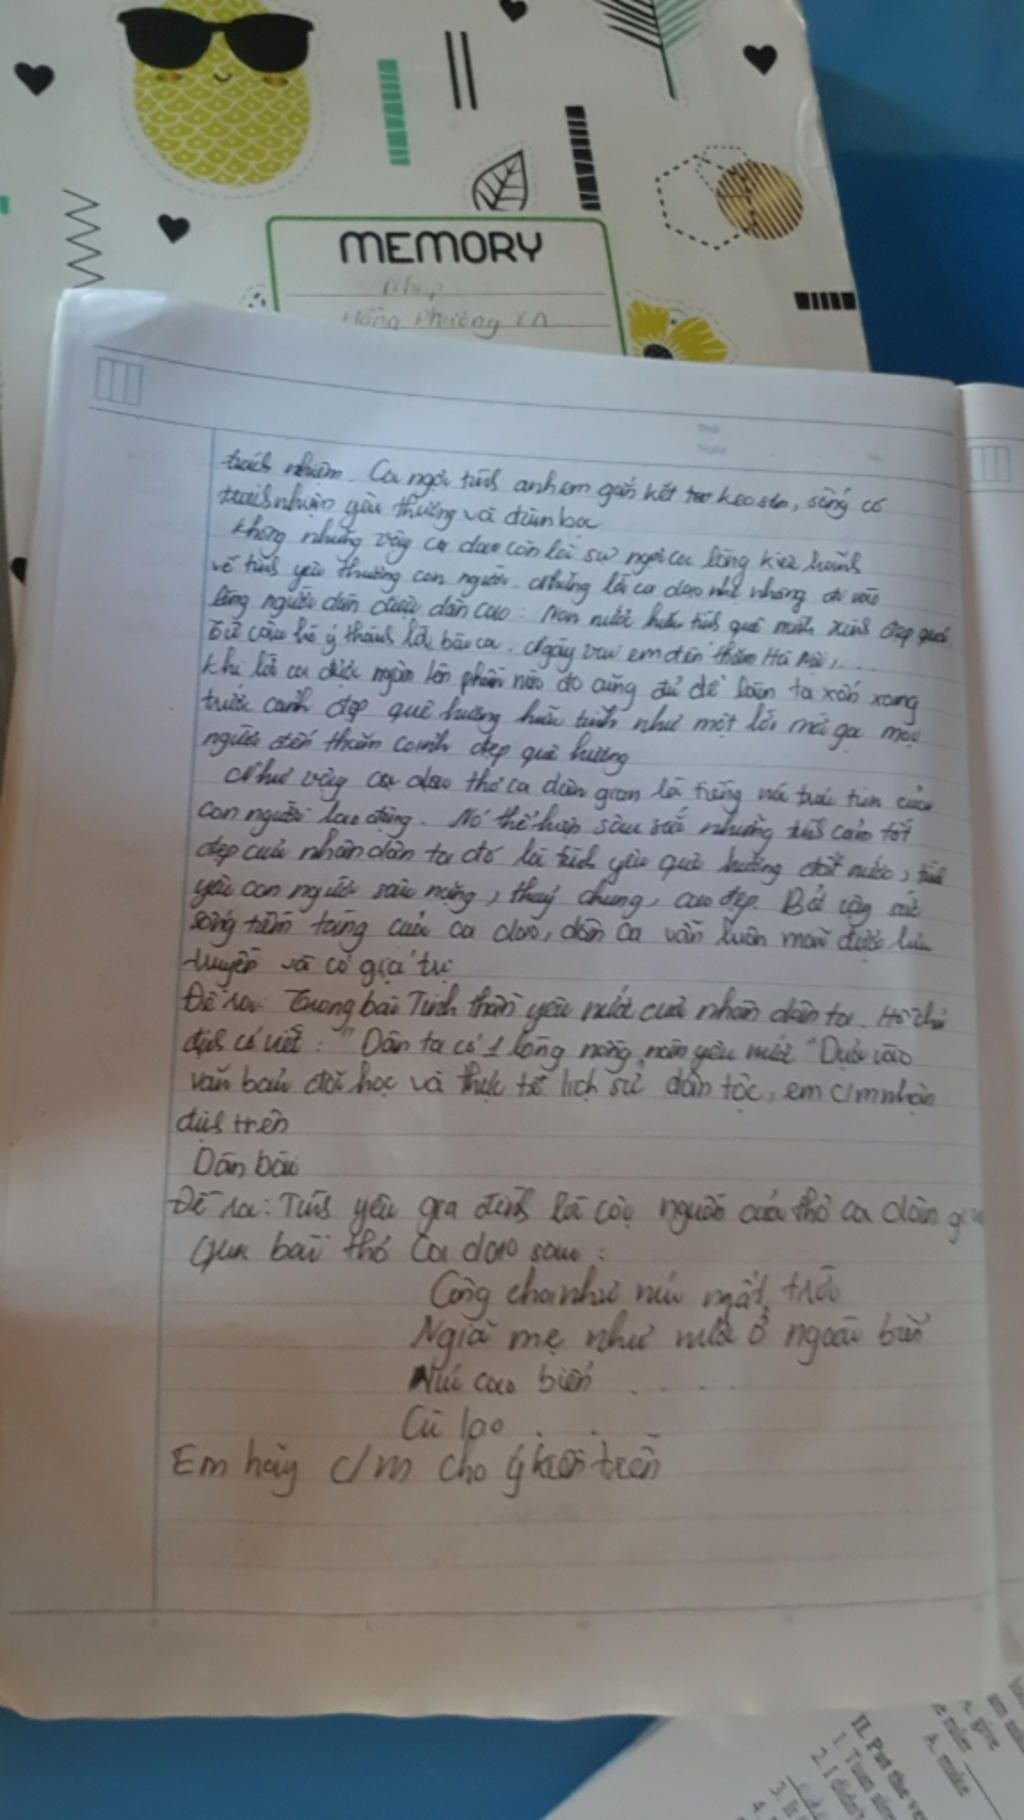 MEMORY
Nháp
Hồng Phường
Thứ
Ngày
trách nhiệm. Ca ngợi tình anh em gắn kết keo sơn, sống có
trách nhiệm yêu thương và đùm bọc
không những vậy ca dao còn là sự ngợi ca lòng kiêu hãnh
về tình yêu thương con người. Những lời ca dao nhẹ nhàng đi vào
lòng người dân được dân cao: Non nước hữu tình quê mình xinh đẹp quá
Từ câu hò ý thành lời bài ca. Ngày vui em đến thăm Hà Nội, ...
khi lời ca được ngân lên phần nào đó cũng đủ để ta xốn xang
trước cảnh đẹp quê hương hữu tình như một lời mời gọi mọi
người đến thăm cảnh đẹp quê hương
Như vậy ca dao thơ ca dân gian là tiếng nói trái tim của
con người lao động. Nó thể hiện sâu sắc những tình cảm tốt
đẹp của nhân dân ta đó là tình yêu quê hương đất nước, tình
yêu con người sâu nặng, thuỷ chung, cao đẹp. Bởi vậy sức
sống tiềm tàng của ca dao, dân ca vẫn luôn mãi được lưu
truyền và có giá trị
Đề ra: Trong bài Tinh thần yêu nước của nhân dân ta. Hồ chủ
tịch có viết: "Dân ta có 1 lòng nồng nàn yêu nước" Dựa vào
văn bản đã học và thực tế lịch sử dân tộc, em c/m nhận
định trên
Dàn bài
Đề ra: Tình yêu gia đình là cội nguồn của thơ ca dân gian
Qua bài thơ ca dao sau:
Công cha như núi ngất trời
Ngĩa mẹ như nước ở ngoài biển
Núi cao biển . . . . .
Cù lao . . .
Em hãy c/m cho ý kiến trên
II. Put the ve
1. Tuan
2. I didn't
A. make
A. give